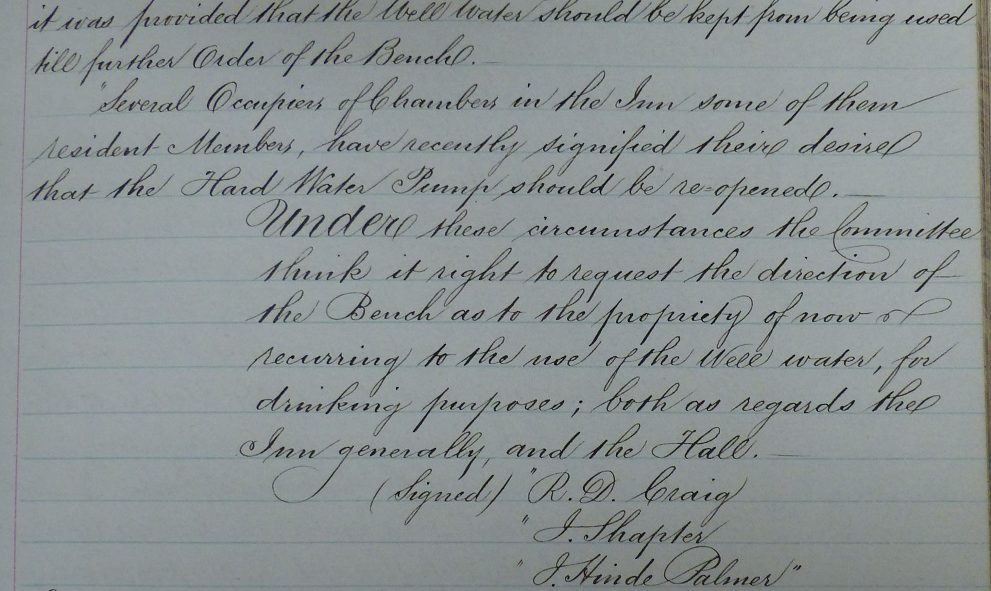 it was provided that the Well Water should be kept from being used
till further Order of the Bench. —
"Several Occupiers of Chambers in the Inn some of them
resident Members, have recently signified their desire
that the Hard Water Pump should be re=opened. —
Under these circumstances the Committee
think it right to request the direction of
the Bench as to the propriety of now
recurring to the use of the Well water, for
drinking purposes; both as regards the
Inn generally, and the Hall. —
(Signed) "R. D. Craig
" J. Shapter
" J. Hinde Palmer"